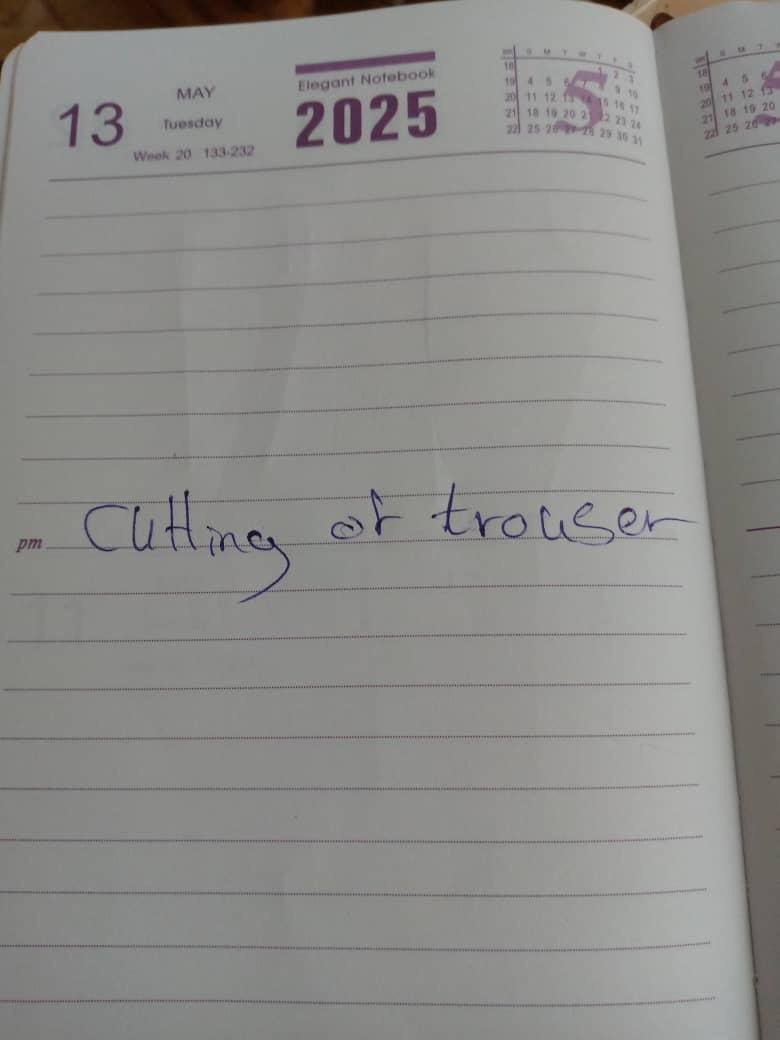 13
MAY
Tuesday
Week 20 133-232
Elegant Notebook
2025
S M T W T F S
18 1 2 3
19 4 5 6 7 9 10
20 11 12 13 14 15 16 17
21 18 19 20 21 22 23 24
22 25 26 27 28 29 30 31
5
S M T
18
19 4 5 6
20 11 12 13
21 18 19 20
22 25 26 27
pm
Cutting of trouser